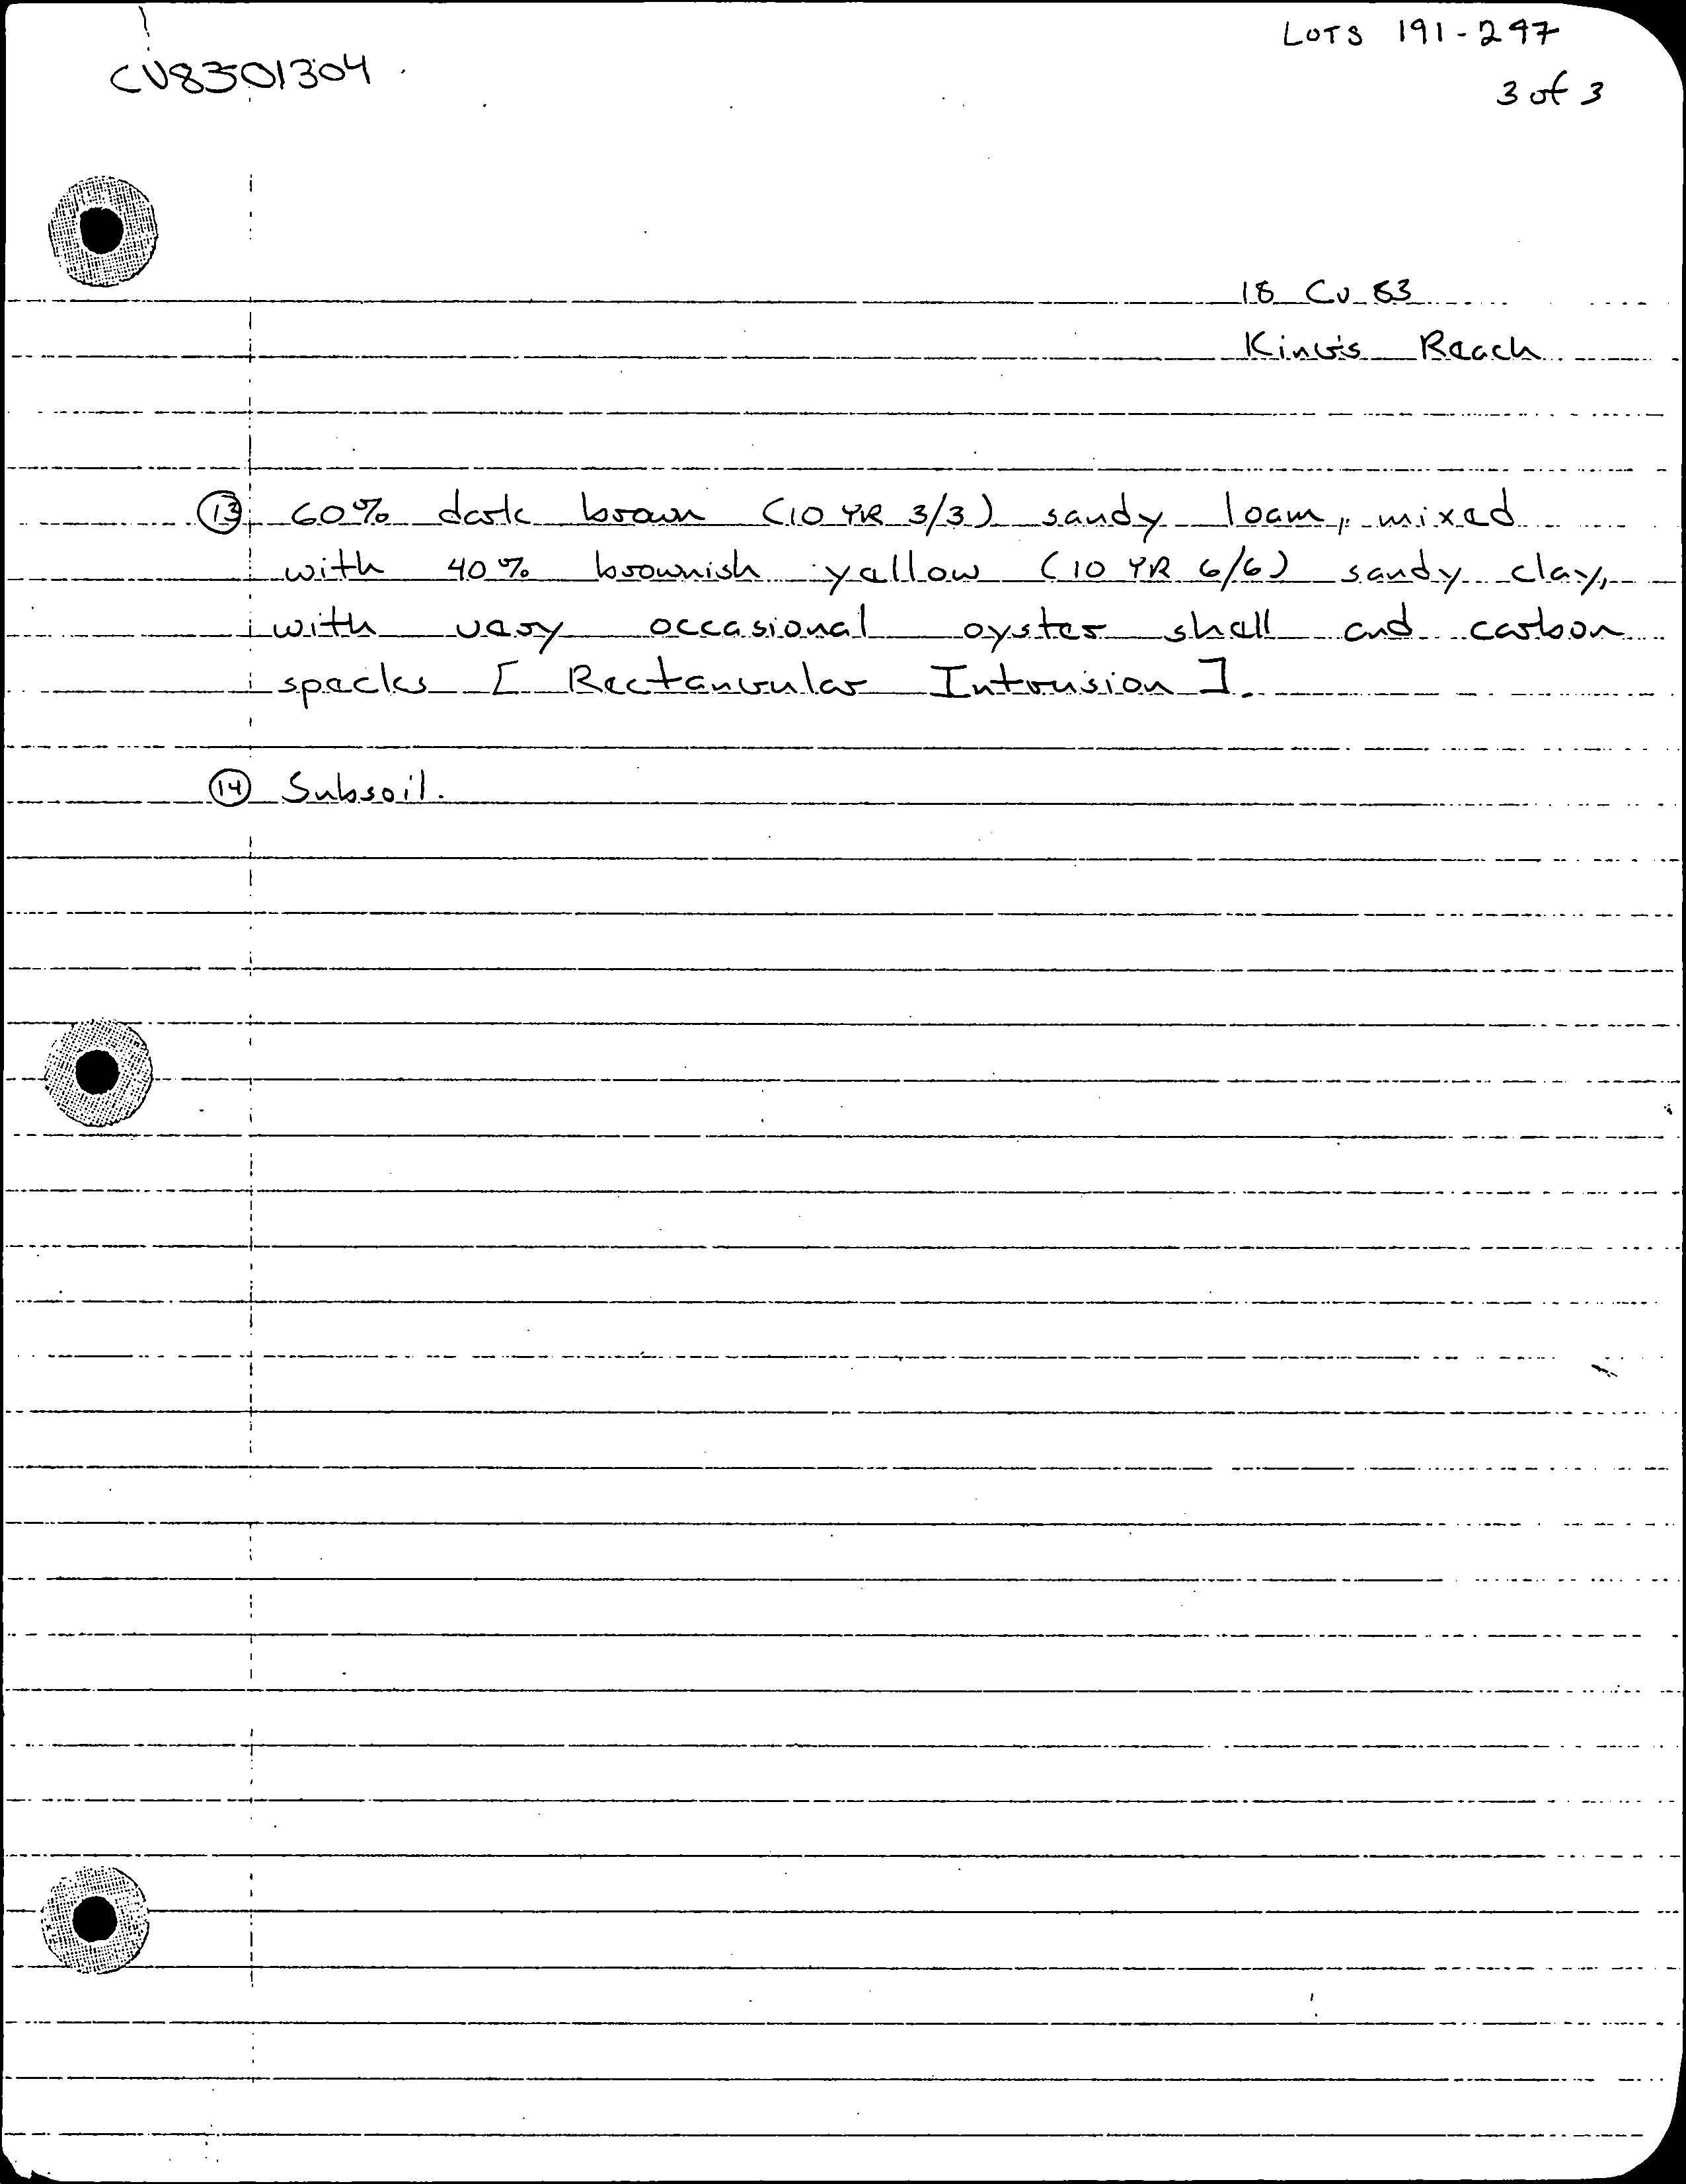 LOTS 191-297
CV8301304
3 of 3
18 Cv 83
King's Reach
13 60% dark brown (10 YR 3/3) sandy loam, mixed
with 40% brownish yellow (10 YR 6/6) sandy clay,
with very occasional oyster shell and carbon
specks [ Rectangular Intrusion ].
14 Subsoil.